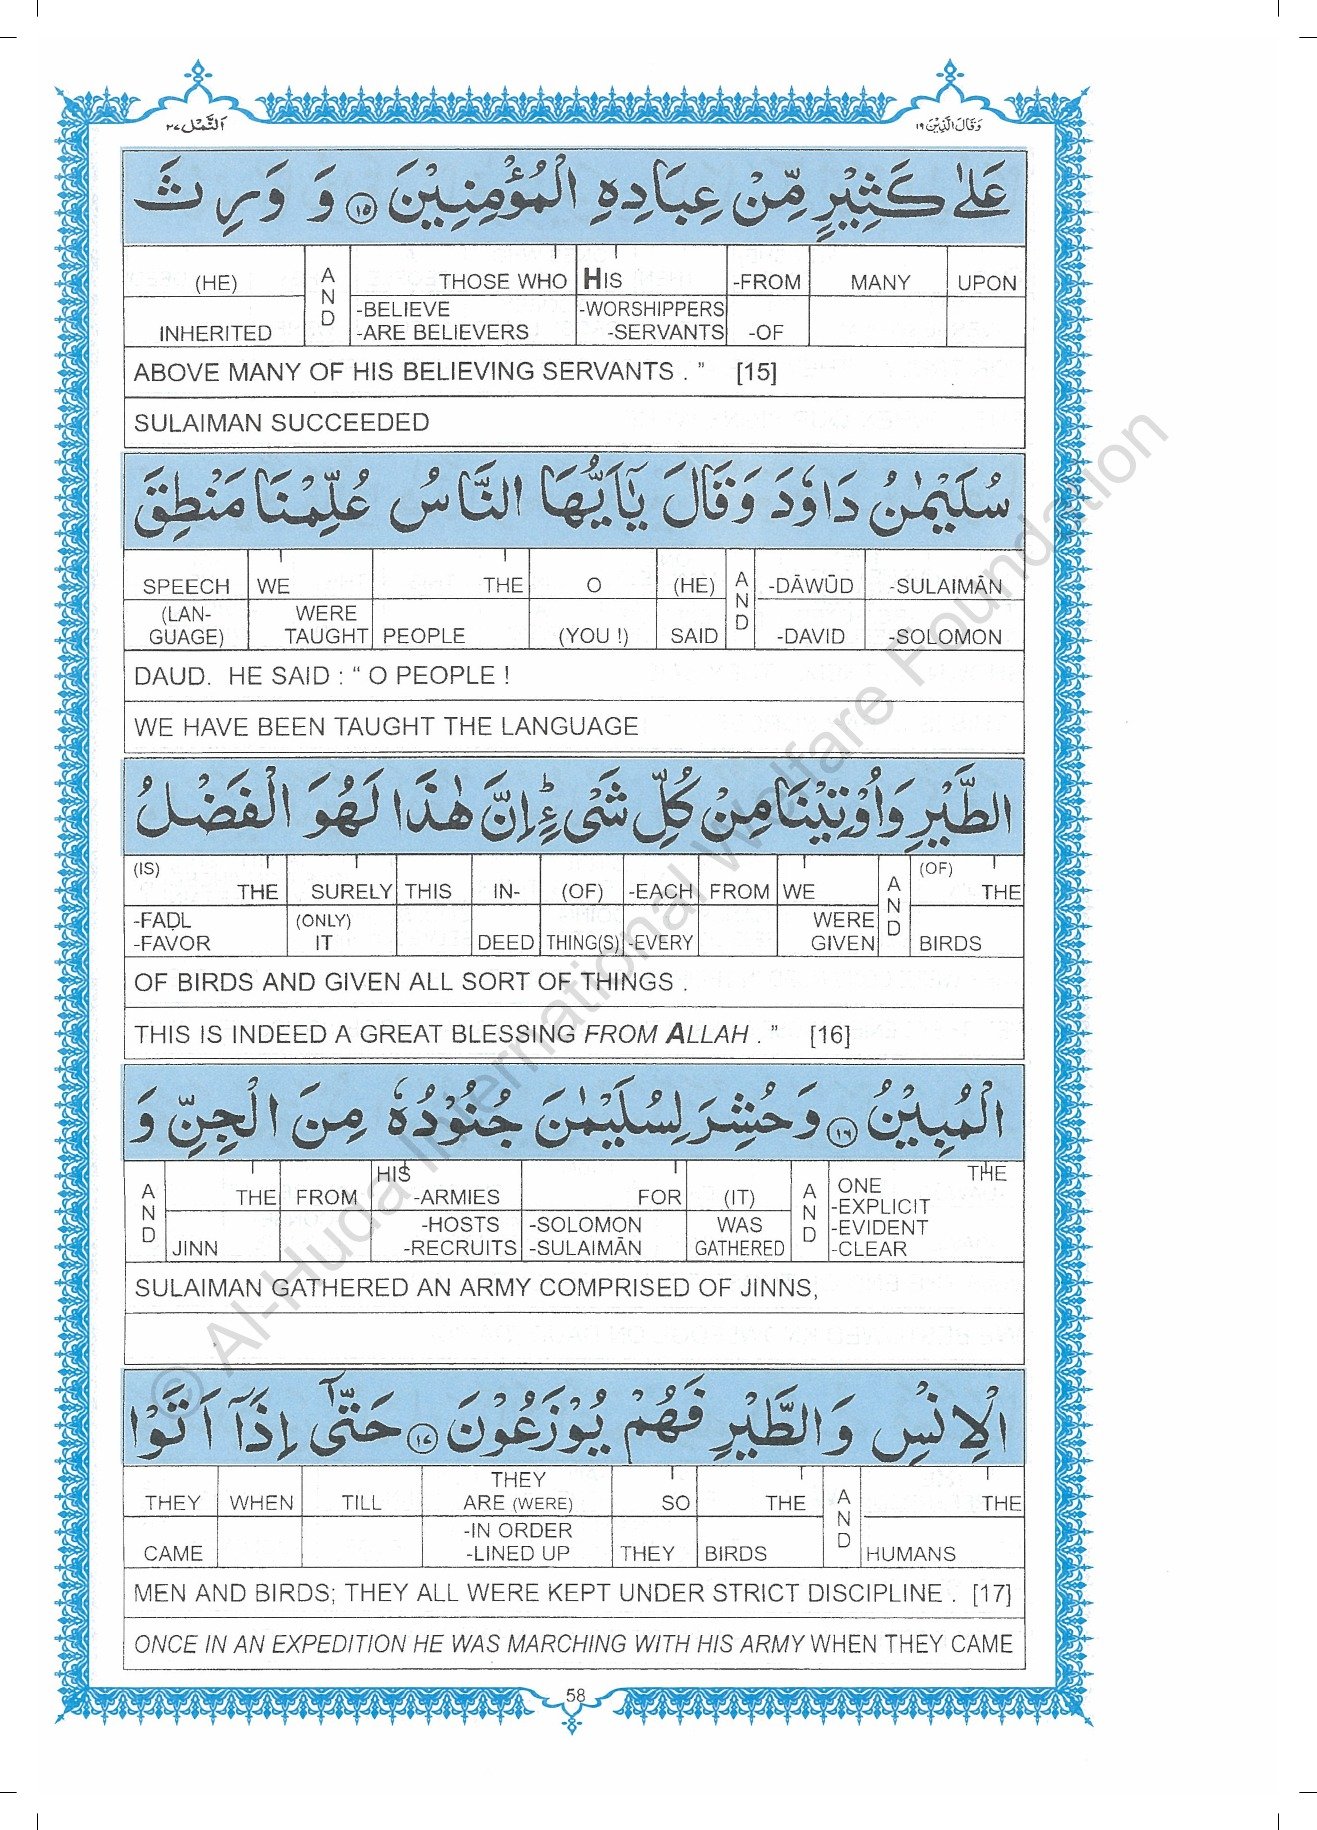 النَّمْل ٢٧
وَقَالَ الَّذِيْنَ ١٩
عَلٰى كَثِيْرٍ مِّنْ عِبَادِهِ الْمُؤْمِنِيْنَ ١٥ وَ وَرِثَ
(HE) A N D THOSE WHO HIS -FROM MANY UPON
INHERITED -BELIEVE -ARE BELIEVERS -WORSHIPPERS -SERVANTS -OF
ABOVE MANY OF HIS BELIEVING SERVANTS . ” [15]
SULAIMAN SUCCEEDED
سُلَيْمٰنُ دَاوٗدَ وَقَالَ يٰۤاَيُّهَا النَّاسُ عُلِّمْنَا مَنْطِقَ
SPEECH WE THE O (HE) A N D -DĀWŪD -SULAIMĀN
(LAN- GUAGE) WERE TAUGHT PEOPLE (YOU !) SAID -DAVID -SOLOMON
DAUD. HE SAID : “ O PEOPLE !
WE HAVE BEEN TAUGHT THE LANGUAGE
الطَّيْرِ وَاُوْتِيْنَا مِنْ كُلِّ شَىْءٍ ؕ اِنَّ هٰذَا لَهُوَ الْفَضْلُ
(IS) THE SURELY THIS IN- (OF) -EACH FROM WE A N D (OF) THE
-FAḌL -FAVOR (ONLY) IT DEED THING(S) -EVERY WERE GIVEN BIRDS
OF BIRDS AND GIVEN ALL SORT OF THINGS .
THIS IS INDEED A GREAT BLESSING FROM ALLAH . ” [16]
الْمُبِيْنُ ١٦ وَحُشِرَ لِسُلَيْمٰنَ جُنُوْدُهٗ مِنَ الْجِنِّ وَ
A N D THE FROM HIS -ARMIES FOR (IT) A N D THE ONE -EXPLICIT
JINN -HOSTS -RECRUITS -SOLOMON -SULAIMĀN WAS GATHERED -EVIDENT -CLEAR
SULAIMAN GATHERED AN ARMY COMPRISED OF JINNS,
الْاِنْسِ وَالطَّيْرِ فَهُمْ يُوْزَعُوْنَ ١٧ حَتّٰۤى اِذَاۤ اَتَوْا
THEY WHEN TILL THEY ARE (WERE) SO THE A N D THE
CAME -IN ORDER -LINED UP THEY BIRDS HUMANS
MEN AND BIRDS; THEY ALL WERE KEPT UNDER STRICT DISCIPLINE . [17]
ONCE IN AN EXPEDITION HE WAS MARCHING WITH HIS ARMY WHEN THEY CAME
58
© Al-Huda International Welfare Foundation